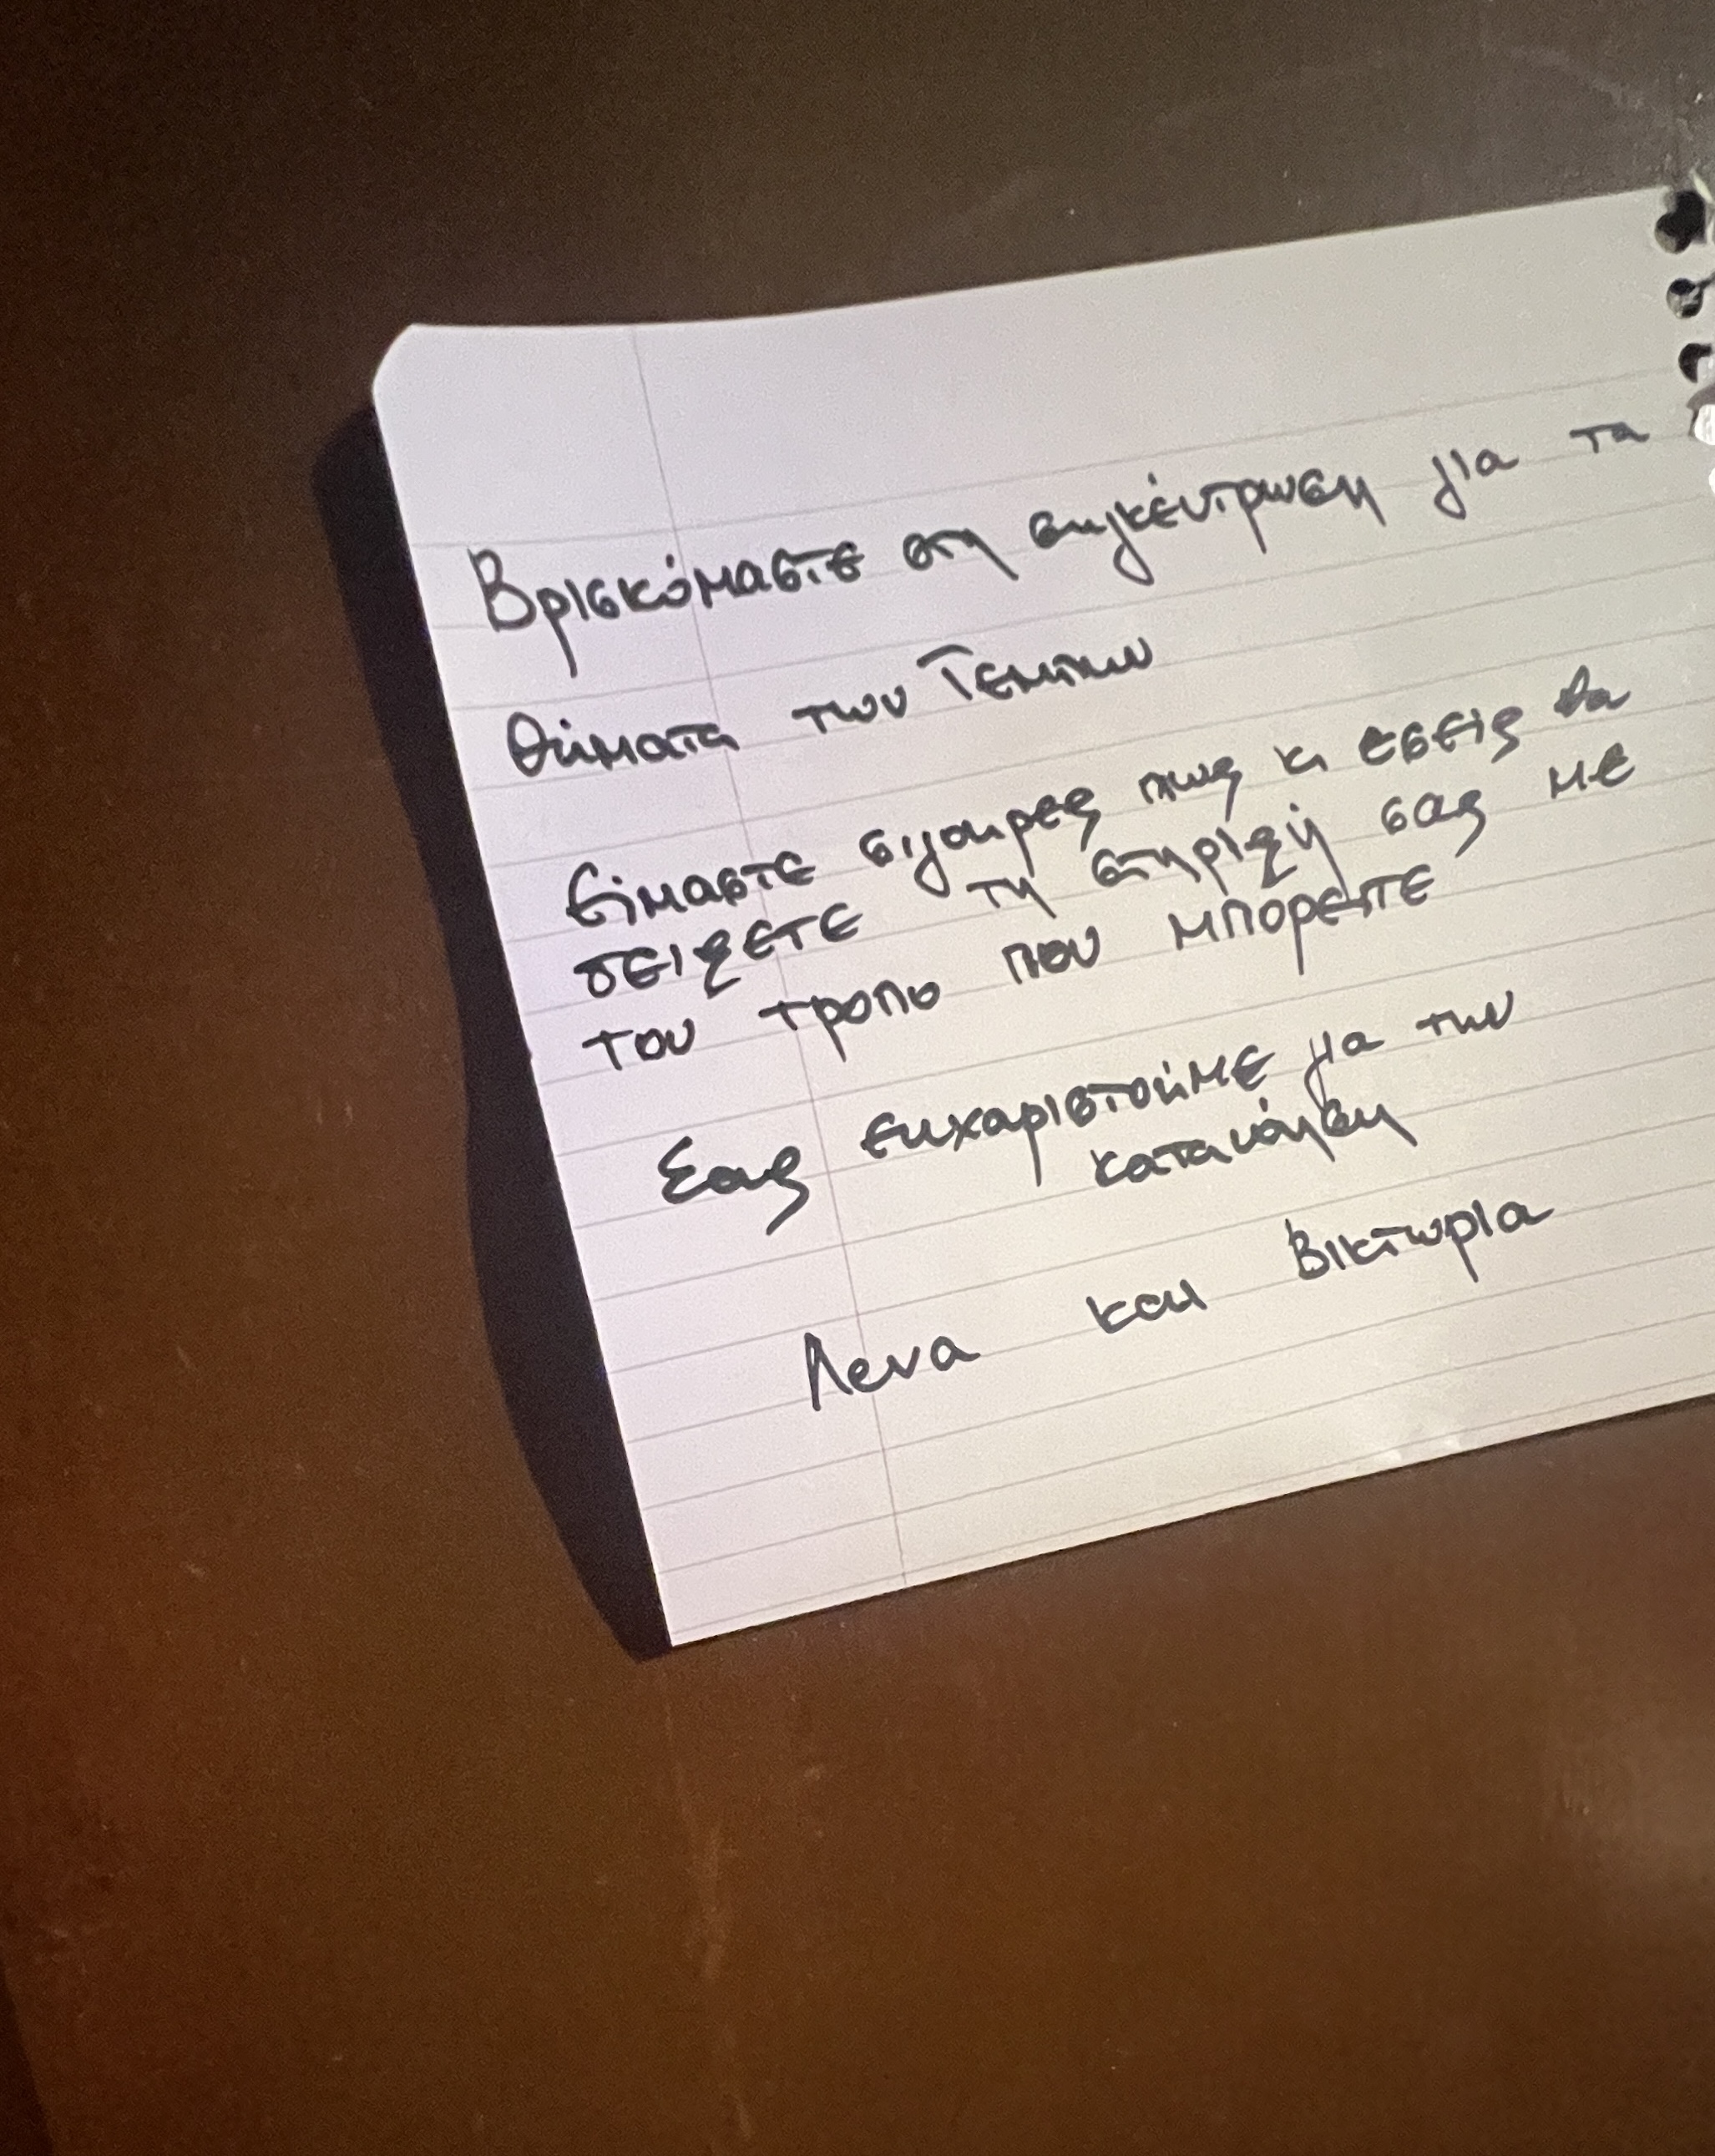 Βρισκόμαστε στη συγκέντρωση για τα
θύματα των Τεμπών
Είμαστε σιγουρες πως κι εσεις θα
δειξετε τη στηριξή σας με
τον τροπο που μπορειτε
Σας ευχαριστούμε για την
κατανόηση
Λενα και Βικτωρια